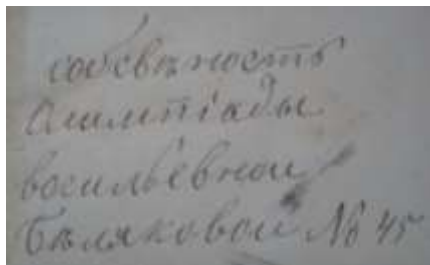 собсвѣность
Олимпіады
восильевной
Бѣляковой № 45